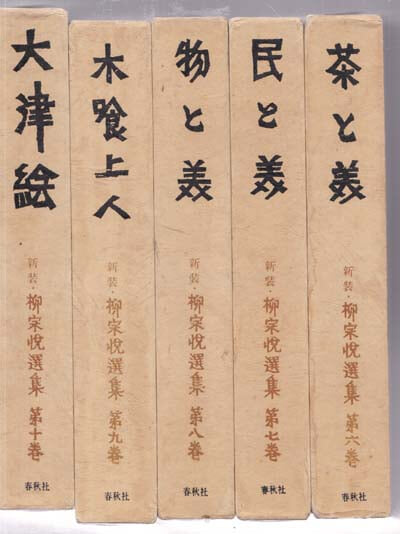 茶と美
新装・柳宗悦選集 第六巻
春秋社
民と美
新装・柳宗悦選集 第七巻
春秋社
物と美
新装・柳宗悦選集 第八巻
春秋社
木喰上人
新装・柳宗悦選集 第九巻
春秋社
大津絵
新装・柳宗悦選集 第十巻
春秋社